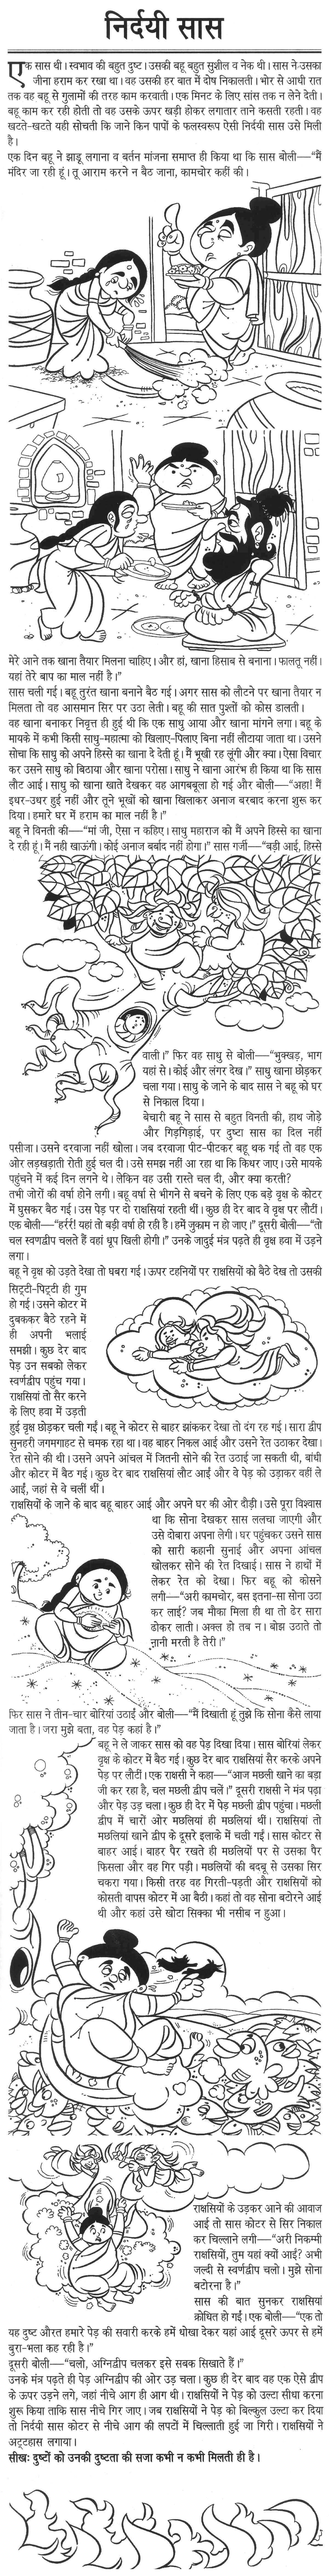 निर्दयी सास
एक सास थी। स्वभाव की बहुत दुष्ट। उसकी बहू बहुत सुशील व नेक थी। सास ने उसका
जीना हराम कर रखा था। वह उसकी हर बात में दोष निकालती। भोर से आधी रात
तक वह बहू से गुलामों की तरह काम करवाती। एक मिनट के लिए सांस तक न लेने देती।
बहू काम कर रही होती तो वह उसके ऊपर खड़ी होकर लगातार ताने कसती रहती। वह
खटते-खटते यही सोचती कि जाने किन पापों के फलस्वरूप ऐसी निर्दयी सास उसे मिली
है।
एक दिन बहू ने झाड़ू लगाना व बर्तन मांजना समाप्त ही किया था कि सास बोली—“मैं
मंदिर जा रही हूं। तू आराम करने न बैठ जाना, कामचोर कहीं की।
मेरे आने तक खाना तैयार मिलना चाहिए। और हां, खाना हिसाब से बनाना। फालतू नहीं।
यहां तेरे बाप का माल नहीं है।”
सास चली गई। बहू तुरंत खाना बनाने बैठ गई। अगर सास को लौटने पर खाना तैयार न
मिलता तो वह आसमान सिर पर उठा लेती। बहू की सात पुश्तों को कोस डालती।
वह खाना बनाकर निवृत्त ही हुई थी कि एक साधु आया और खाना मांगने लगा। बहू के
मायके में कभी किसी साधु-महात्मा को खिलाए-पिलाए बिना नहीं लौटाया जाता था। उसने
सोचा कि साधु को अपने हिस्से का खाना दे देती हूं। मैं भूखी रह लूंगी और क्या। ऐसा विचार
कर उसने साधु को बिठाया और खाना परोसा। साधु ने खाना आरंभ ही किया था कि सास
लौट आई। साधु को खाना खाते देखकर वह आगबबूला हो गई और बोली—“अहा! मैं
इधर-उधर हुई नहीं और तूने भूखों को खाना खिलाकर अनाज बरबाद करना शुरू कर
दिया। हमारे घर में हराम का माल नहीं है।”
बहू ने विनती की—“मां जी, ऐसा न कहिए। साधु महाराज को मैं अपने हिस्से का खाना
दे रही हूं। मैं नही खाऊंगी। कोई अनाज बर्बाद नहीं होगा।” सास गर्जी—“बड़ी आई, हिस्से
वाली।” फिर वह साधु से बोली—“भुक्खड़, भाग
यहां से। कोई और लंगर देख।” साधु खाना छोड़कर
चला गया। साधु के जाने के बाद सास ने बहू को घर
से निकाल दिया।
बेचारी बहू ने सास से बहुत विनती की, हाथ जोड़े
और गिड़गिड़ाई, पर दुष्टा सास का दिल नहीं
पसीजा। उसने दरवाजा नहीं खोला। जब दरवाजा पीट-पीटकर बहू थक गई तो वह एक
ओर लड़खड़ाती रोती हुई चल दी। उसे समझ नहीं आ रहा था कि किधर जाए। उसे मायके
पहुंचने में कई दिन लगने थे। लेकिन वह उसी रास्ते चल दी, और क्या करती?
तभी जोरों की वर्षा होने लगी। बहू वर्षा से भीगने से बचने के लिए एक बड़े वृक्ष के कोटर
में घुसकर बैठ गई। उस पेड़ पर दो राक्षसियां रहती थीं। कुछ ही देर बाद वे वृक्ष पर लौटीं।
एक बोली—“हर्रर्र! यहां तो बड़ी वर्षा हो रही है। हमें जुकाम न हो जाए।” दूसरी बोली—“तो
चल स्वणद्वीप चलते हैं वहां धूप खिली होगी।” उनके जादुई मंत्र पढ़ते ही वृक्ष हवा में उड़ने
लगा।
बहू ने वृक्ष को उड़ते देखा तो घबरा गई। ऊपर टहनियों पर राक्षसियों को बैठे देख तो उसकी
सिट्टी-पिट्टी ही गुम
हो गई। उसने कोटर में
दुबककर बैठे रहने में
ही अपनी भलाई
समझी। कुछ देर बाद
पेड़ उन सबको लेकर
स्वर्णद्वीप पहुंच गया।
राक्षसियां तो सैर करने
के लिए हवा में उड़ती
हुई वृक्ष छोड़कर चली गईं। बहू ने कोटर से बाहर झांककर देखा तो दंग रह गई। सारा द्वीप
सुनहरी जगमगाहट से चमक रहा था। वह बाहर निकल आई और उसने रेत उठाकर देखा।
रेत सोने की थी। उसने अपने आंचल में जितनी सोने की रेत उठाई जा सकती थी, बांधी
और कोटर में बैठ गई। कुछ देर बाद राक्षसियां लौट आईं और वे पेड़ को उड़ाकर वहीं ले
आईं, जहां से वे चलीं थीं।
राक्षसियों के जाने के बाद बहू बाहर आई और अपने घर की ओर दौड़ी। उसे पूरा विश्वास
था कि सोना देखकर सास ललचा जाएगी और
उसे दोबारा अपना लेगी। घर पहुंचकर उसने सास
को सारी कहानी सुनाई और अपना आंचल
खोलकर सोने की रेत दिखाई। सास ने हाथों में
लेकर रेत को देखा। फिर बहू को कोसने
लगी—“अरी कामचोर, बस इतना-सा सोना उठा
कर लाई? जब मौका मिला ही था तो ढेर सारा
ढोकर लाती। अक्ल हो तब न। बोझ उठाते तो
नानी मरती है तेरी।”
फिर सास ने तीन-चार बोरियां उठाईं और बोली—“मैं दिखाती हूं तुझे कि सोना कैसे लाया
जाता है। जरा मुझे बता, वह पेड़ कहां है।”
बहू ने ले जाकर सास को वह पेड़ दिखा दिया। सास बोरियां लेकर
वृक्ष के कोटर में बैठ गई। कुछ देर बाद राक्षसियां सैर करके अपने
पेड़ पर लौटीं। एक राक्षसी ने कहा—“आज मछली खाने का बड़ा
जी कर रहा है, चल मछली द्वीप चलें।” दूसरी राक्षसी ने मंत्र पढ़ा
और पेड़ उड़ चला। कुछ ही देर में पेड़ मछली द्वीप पहुंचा। मछली
द्वीप में चारों ओर मछलियां ही मछलियां थीं। राक्षसियां तो
मछलियां खाने द्वीप के दूसरे इलाके में चली गईं। सास कोटर से
बाहर आई। बाहर पैर रखते ही मछलियों पर से उसका पैर
फिसला और वह गिर पड़ी। मछलियों की बदबू से उसका सिर
चकरा गया। किसी तरह वह गिरती-पड़ती और राक्षसियों को
कोसती वापस कोटर में आ बैठी। कहां तो वह सोना बटोरने आई
थी और कहां उसे खोटा सिक्का भी नसीब न हुआ।
राक्षसियों के उड़कर आने की आवाज
आई तो सास कोटर से सिर निकाल
कर चिल्लाने लगी—“अरी निकम्मी
राक्षसियों, तुम यहां क्यों आईं? अभी
जल्दी से स्वर्णद्वीप चलो। मुझे सोना
बटोरना है।”
सास की बात सुनकर राक्षसियां
क्रोधित हो गईं। एक बोली—“एक तो
यह दुष्ट औरत हमारे पेड़ की सवारी करके हमें धोखा देकर यहां आई दूसरे ऊपर से हमें
बुरा-भला कह रही है।”
दूसरी बोली—“चलो, अग्निद्वीप चलकर इसे सबक सिखाते हैं।”
उनके मंत्र पढ़ते ही पेड़ अग्निद्वीप की ओर उड़ चला। कुछ ही देर बाद वह एक ऐसे द्वीप
के ऊपर उड़ने लगे, जहां नीचे आग ही आग थी। राक्षसियों ने पेड़ को उल्टा सीधा करना
शुरू किया ताकि सास नीचे गिर जाए। जब राक्षसियों ने पेड़ को बिल्कुल उल्टा कर दिया
तो निर्दयी सास कोटर से नीचे आग की लपटों में चिल्लाती हुई जा गिरी। राक्षसियों ने
अट्टहास लगाया।
सीखः दुष्टों को उनकी दुष्टता की सजा कभी न कभी मिलती ही है।